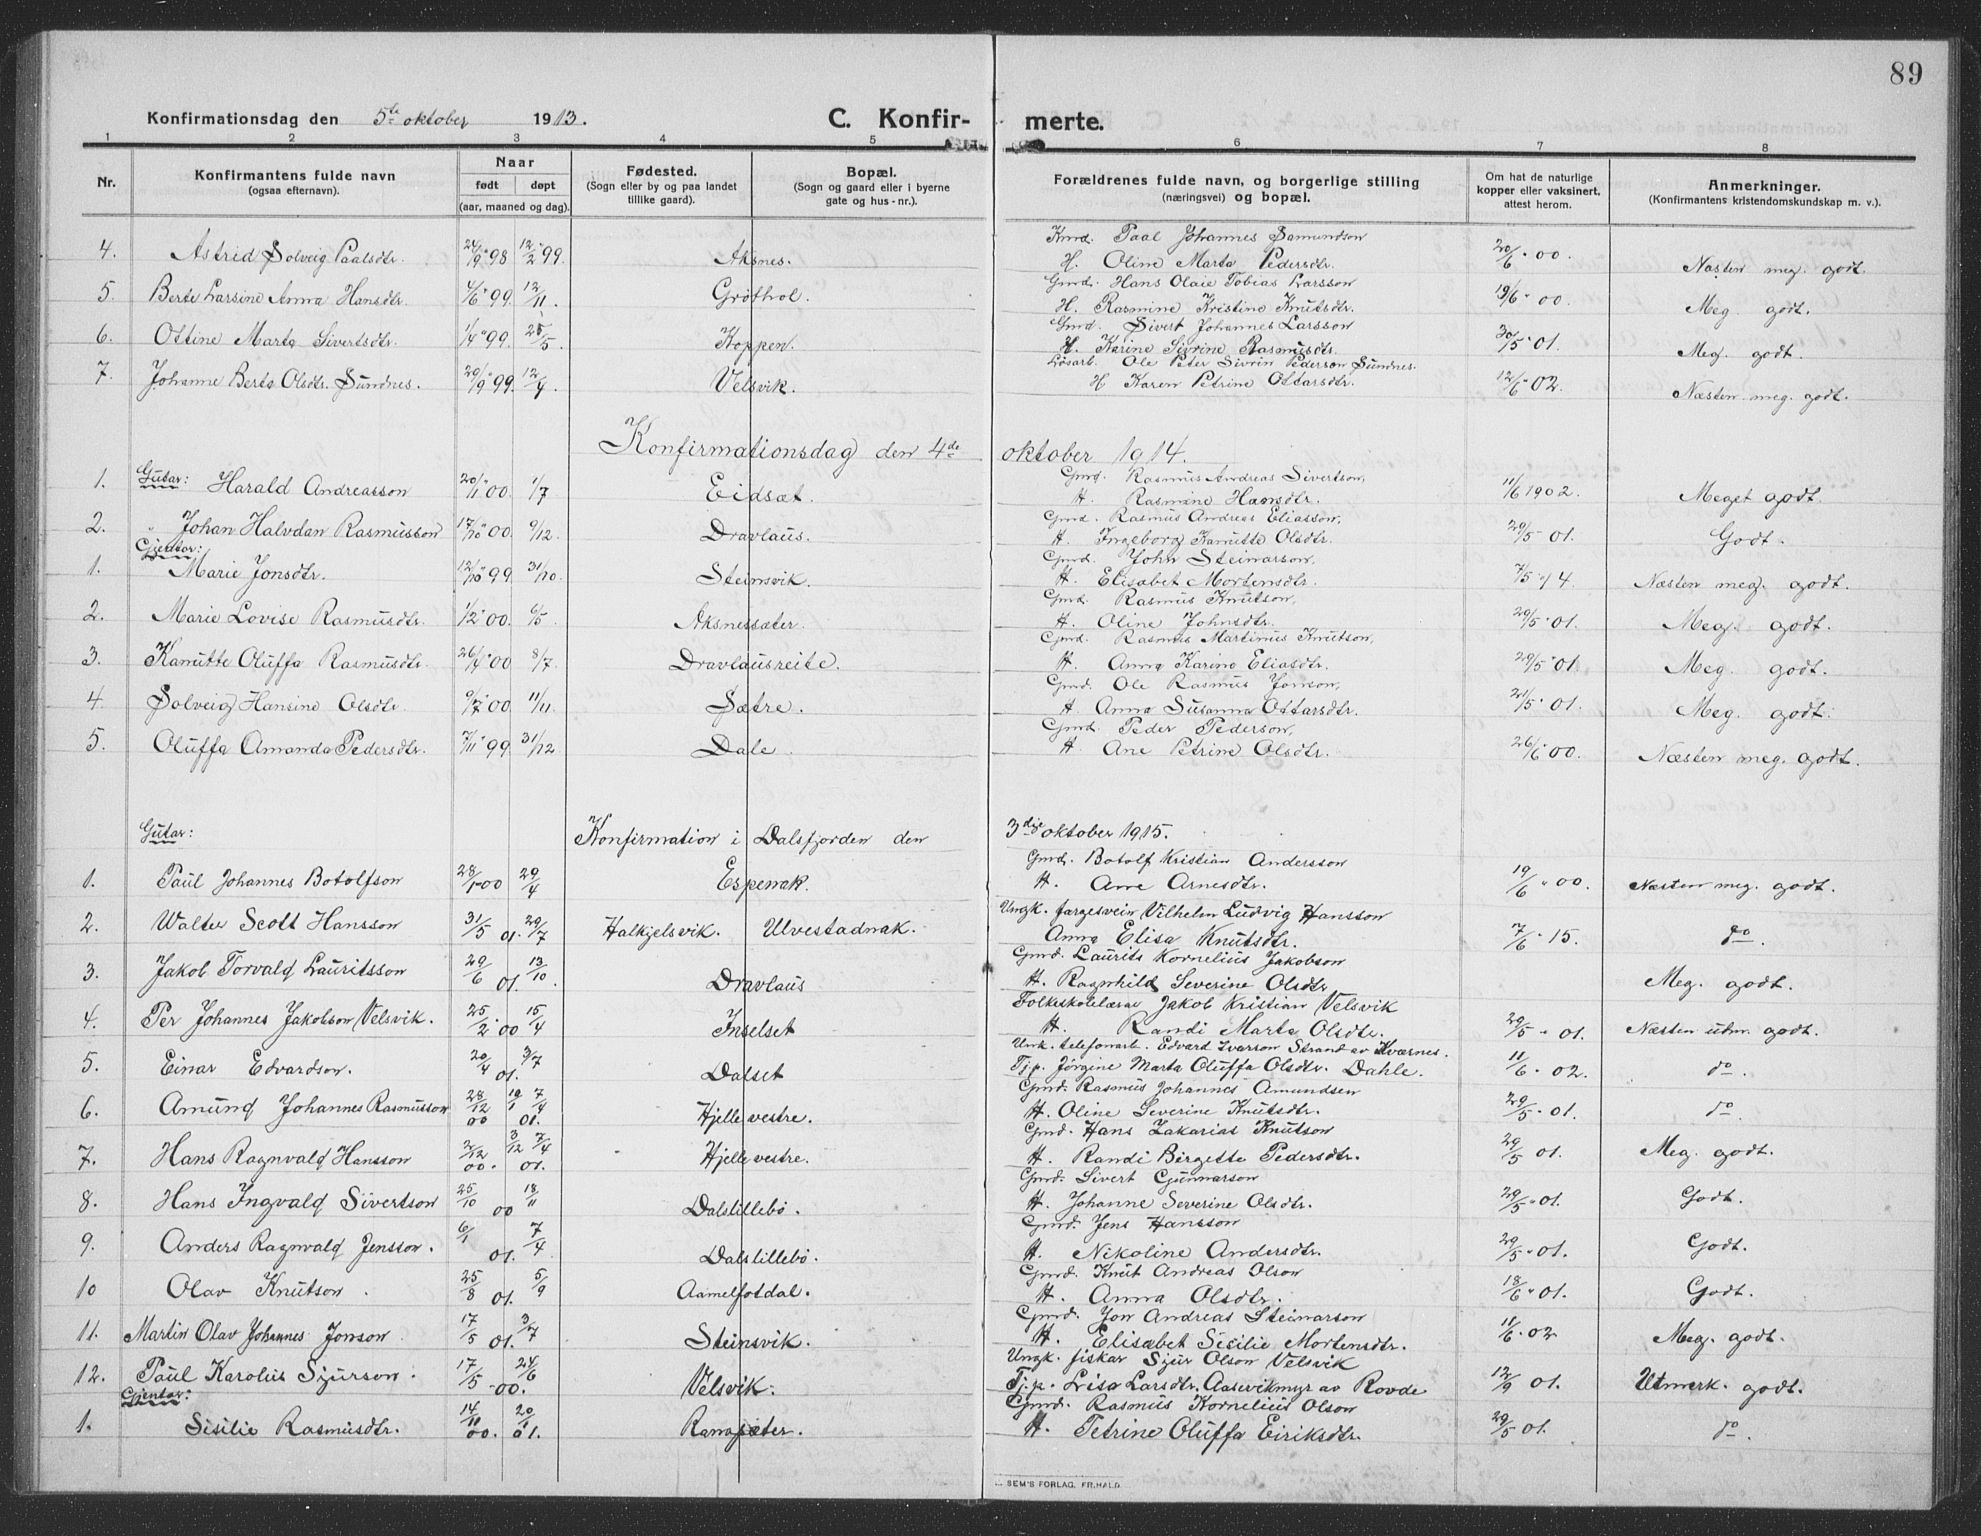 89
Konfirmationsdag den 5te oktober 1913. C. Konfir- merte.
1 2 3 4 5 6 7 8
Nr. Konfirmantens fulde navn (ogsaa efternavn). Naar født døpt (aar, maaned og dag). Fødested. (Sogn eller by og paa landet tillike gaard). Bopæl. (Sogn og gaard eller i byerne gate og hus-nr.). Forældrenes fulde navn, og borgerlige stilling (næringsvei) og bopæl. Om hat de naturlige kopper eller vaksinert, attest herom. Anmerkninger. (Konfirmantens kristendomskundskap m. v.).
4. Astrid Solveig Paalsdtr. 24/9 98 12/2 99. Aksnes. Kmd. Paal Johannes Samundson
H. Oline Marta Pedersdtr. 20/6 00. Næsten meg. godt
5. Berte Larsine Anna Hansdtr. 4/6 99 12/11. Grøthol. Gmd. Hans Olaie Tobias Larsson
H. Rasmine Kristine Knutsdtr. 19/6 00. Meg. godt.
6. Ostine Marta Sivertsdtr. 1/4 99. 25/5. Koppen. Gmd. Sivert Johannes Larsson
H. Karine Sivrine Rasmusdtr. 30/5 01. Meg. godt.
7. Johanne Berta Olsdtr. Sundnes. 20/9 99. 12/4. Velsvik. Løsarb. Ole Peter Sivrin Pederson Sundnes.
H Karen Petrine Ottarsdtr. 12/6 02. Næsten meg. godt.
Konfirmationsdag den 4de oktober 1914.
1. Gutar: Harald Andreasson 20/1 00. 1/7 Eidsæt. Gmd. Rasmus Andreas Sivertson,
H. Rasmine Hansdtr. 11/6 1902. Meget godt.
2. " Johan Halvdan Rasmusson 17/10 00 9/12. Dravlaus. Gmd. Rasmus Andreas Eliasson,
H. Ingeborg Kanutte Olsdtr. 29/5 01. Godt.
Gjentor:
1. Marie Jonsdtr. 12/10 99 31/10. Steinsvik. Gmd. John Steinarson,
H. Elisabet Mortensdtr. 7/5 14. Næsten meg. godt.
2. Marie Lovise Rasmusdtr. 1/2 00. 6/5. Aksnessæter. Gmd. Rasmus Knutson,
H. Oline Johnsdtr. 29/5 01. Meg. godt.
3. Kanutte Oluffa Rasmusdtr. 26/4 00 8/7. Dravlausreite. Gmd. Rasmus Martinus Knutson,
H. Anna Karine Eliasdtr. 29/5 01. Meg. godt.
4 Solveig Hansine Olsdtr. 9/7 00 11/11. Sætre. Gmd. Ole Rasmus Jonson,
H. Anna Susanna Ottarsdtr. 21/5 01. Meg. godt.
5. Oluffa Amanda Pedersdtr. 7/11 99. 31/12. Dale. Gmd. Peder Pederson,
H. Ane Petrine Olsdtr. 26/6 00. Næsten meg. godt.
Gutar: Konfirmation i Dalsfjorden den 3dje oktober 1915.
1. Paul Johannes Botolfson 28/1 00 29/4 Espenak. Gmd. Botolf Kristian Andersson
H. Ane Arnesdtr. 19/6 00. Næsten meg. godt.
2. Walter Scott Hansson 31/5 01. 29/7 Halkjelsvik. Ulvestadnak. Ungk. fargesvein Vilhelm Ludvig Hansson
Anna Elisa Knutsdtr. 7/6 15. do.
3. Jakob Torvald Lauritsson 29/6 01. 13/10. Dravlaus Gmd. Laurits Kornelius Jakobson
H. Ragnhild Severine Olsdtr Meg. godt.
4. Per Johannes Jakobson Velsvik. 25/2 00 15/4 Inselset Folkeskolelærar Jakob Kristian Velsvik
H. Randi Marta Olsdtr. 29/5 01. Næsten utm. godt.
5. Einar Edvardson. 20/4 01. 3/7 Dalset Unk. telefonarb. Edvard Ivarson Strand av Kværnes.
Tj.p. Jørgine Marta Oluffa Olsdtr. Dahle. 11/6 02. do.
6. Amund Johannes Rasmusson 28/12 00 19/1 7/4 01. Hjelle vestre. Gmd. Rasmus Johannes Amundsen
H. Oline Severine Knutsdtr. 29/5 01. do.
7. Hans Ragnvald Hansson 2/12 00. 3/12 7/4 01. Hjelle vestre. Gmd. Hans Zakarias Knutson
H. Randi Birgette Pedersdtr. 29/5 01. Meg. godt.
8. Hans Ingvald Sivertson 25/10 00 18/11 Dalstillebø. Gmd. Sivert Gunnarson
H. Johanne Severine Olsdtr. 29/5 01. Godt.
9. Anders Ragnvald Jensson. 6/1 01. 7/4 Dalstillebø. Gmd. Jens Hansson
H. Nikoline Andersdtr. 29/5 01. Godt.
10 Olav Knutson. 25/8 01. 5/9 Aamelfotdal. Gmd. Knut Andreas Olson
H. Anna Olsdtr. 18/6 01. Godt.
11. Martin Olav Johannes Jonson. 17/5 01. 3/7 Steinsvik. Gmd. Jon Andreas Steinarson
H. Elisabet Sisilie Mortensdtr. 11/6 02. Meg. godt.
12. Paul Karolus Sjurson. 17/5 00. 24/6 Velsvik. Ungk. fiskar Sjur Olson Velsvik
Tj.p. Lisa Larsdtr. Aasevikmyr av Rovde 12/9 01. Utmerk. godt.
Gjentor:
1. Sisilie Rasmusdtr. 14/11 00. 20/1 01. Ramsæter. Gmd. Rasmus Kornelius Olson
H. Petrine Oluffa Eiriksdtr. 29/5 01. do.
SEM'S FORLAG, FR.HALD